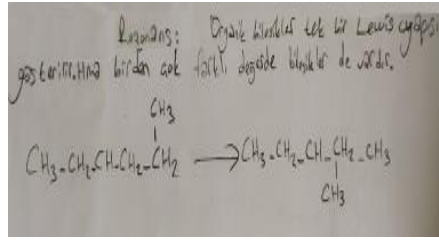 Rezonans: Organik bileşikler tek bir Lewis yapısı
gösterir. Ama birden çok farklı değerde bileşikler de vardır.
CH3
CH3-CH2-CH-CH2-CH2 → CH3-CH2-CH-CH2-CH3
CH3